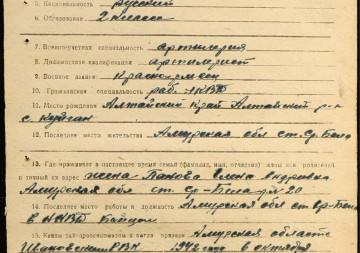 5. Национальность русский
6. Образование 2 класса
7. Военно-учетная специальность артилерия
8. Должностная квалификация артилерист
9. Военное звание Красноармеец
10. Гражданская специальность раб. НКВД
11. Место рождения Алтайский край Алтайский р-н
с. Куяган
12. Последнее место жительства Амурская обл ст. Ср-Бела
13. Где проживает в настоящее время семья (фамилия, имя, отчество) жены или родителей
и точный их адрес жена Панова Елена Андреевна
Амурская обл ст. Ср-Бела 20
14. Последнее место работы и должность Амурская обл ст Ср-Бела
в НКВД Бойцом
15. Каким рай-горвоенкоматом и когда призван Амурская область
Ивановский РВК 1942 года в октябре